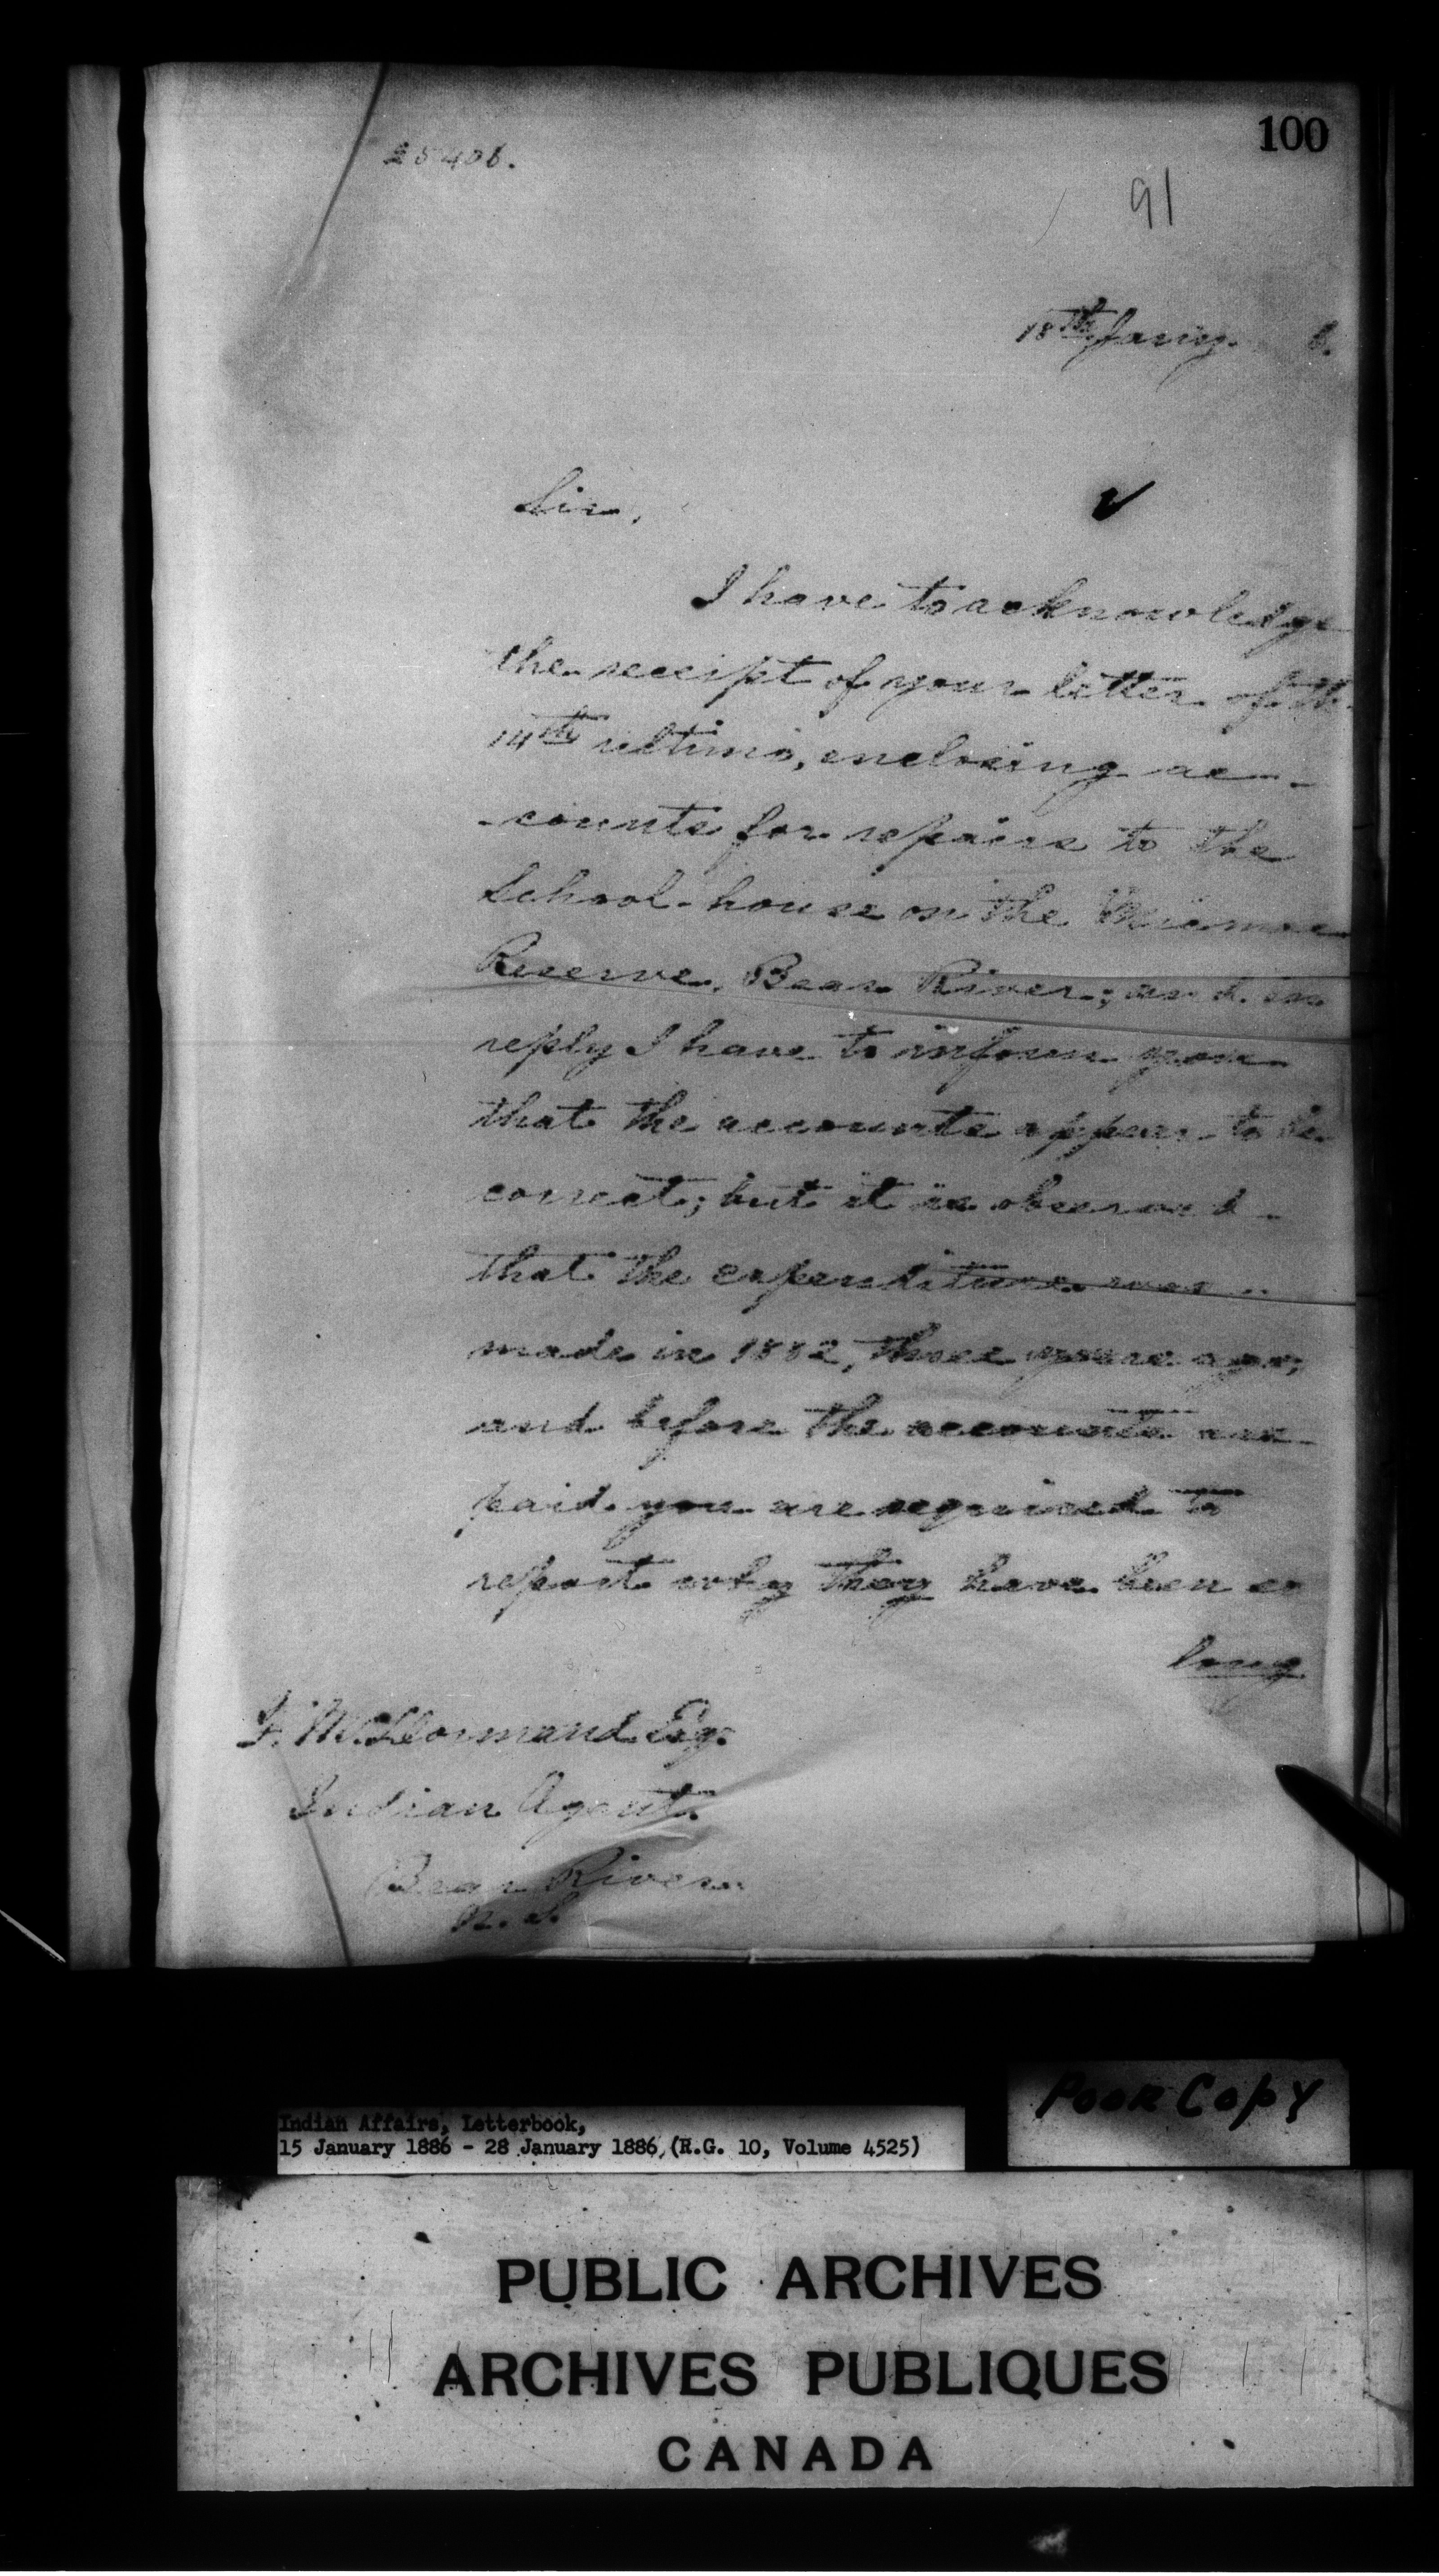 100
25406.
91
18th Jany. 6.
Sir,
I have to acknowledge
the receipt of your letter of the
14th ultimo, enclosing ac-
-counts for repairs to the
School-house on the Micmac
Reserve, Bear River; and in
reply I have to inform you
that the accounts appear to be
correct; but it is observed
that the expenditure was
made in 1882, three years ago;
and before the accounts are
paid you are required to
report why they have been so
long
F. McDormand Esq.
Indian Agent.
Bear River
N.S.
Poor Copy
Indian Affairs, Letterbook,
15 January 1886 - 28 January 1886, (R.G. 10, Volume 4525)
PUBLIC ARCHIVES
ARCHIVES PUBLIQUES
CANADA